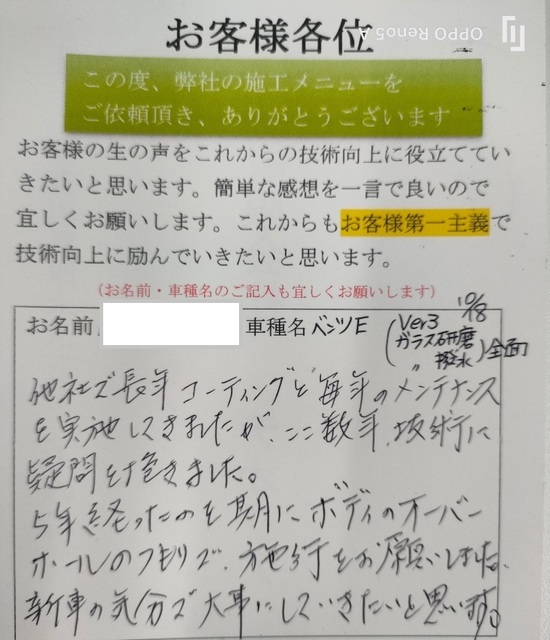 OPPO Reno5 A
お客様各位
この度、弊社の施工メニューを
ご依頼頂き、ありがとうございます
お客様の生の声をこれからの技術向上に役立ててい
きたいと思います。簡単な感想を一言で良いので
宜しくお願いします。これからもお客様第一主義で
技術向上に励んでいきたいと思います。
(お名前・車種名のご記入も宜しくお願いします)
10/8
お名前 車種名 ベンツE
(Ver3
ガラス研磨
〃 撥水) 全面
他社で長年コーティングと毎年のメンテナンス
を実施してきましたが、ここ数年、技術に
疑問を抱きました。
5年経ったのを期にボディのオーバー
ホールのつもりで、施行をお願いしました。
新車の気分で大事にしていきたいと思います。